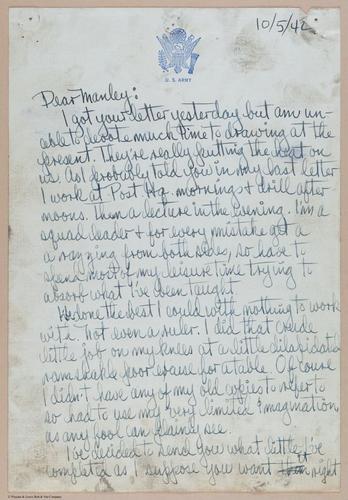 10/5/42
U.S. ARMY
Dear Manley:
I got your letter yesterday but am un-
able to devote much time to drawing at the
present. They're really putting the heat on
us. As I probably told you in my last letter
I work at Post Hq. mornings & drill after
noons. Then a lecture in the evening. I'm a
squad leader & for every mistake get a
a razzing from both sides, so have to
spend most of my leisure time trying to
absorb what I've been taught
I've done the best I could with nothing to work
with. Not even a ruler. I did that crude
little job on my knees at a little dilapidated
ramshackle poor excuse for a table. Of course
I didn't have any of my old copies to refer to
so had to use my very limited imagination
as any fool can plainly see.
I've decided to send you what little I've
completed as I suppose you want it right